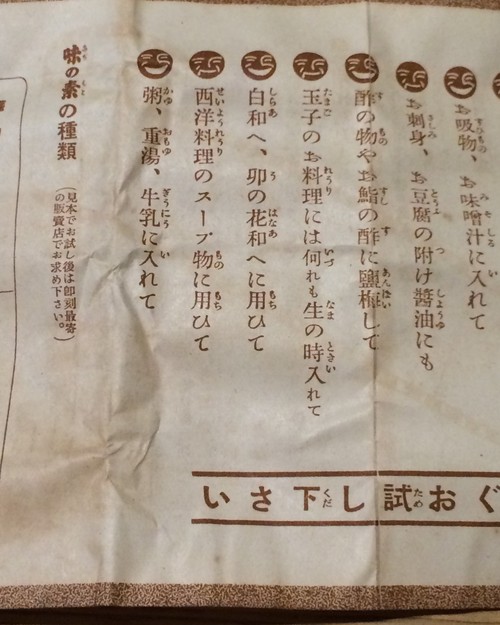 お吸物、お味噌汁に入れて
お刺身、お豆腐の附け醬油にも
酢の物やお鮨の酢に鹽梅して
玉子のお料理には何れも生の時入れて
白和へ、卯の花和へに用ひて
西洋料理のスープ物に用ひて
粥、重湯、牛乳に入れて
味の素の種類
(見本でお試し後は卽刻最寄
の販賣店でお求め下さい。)
ぐお試し下さい